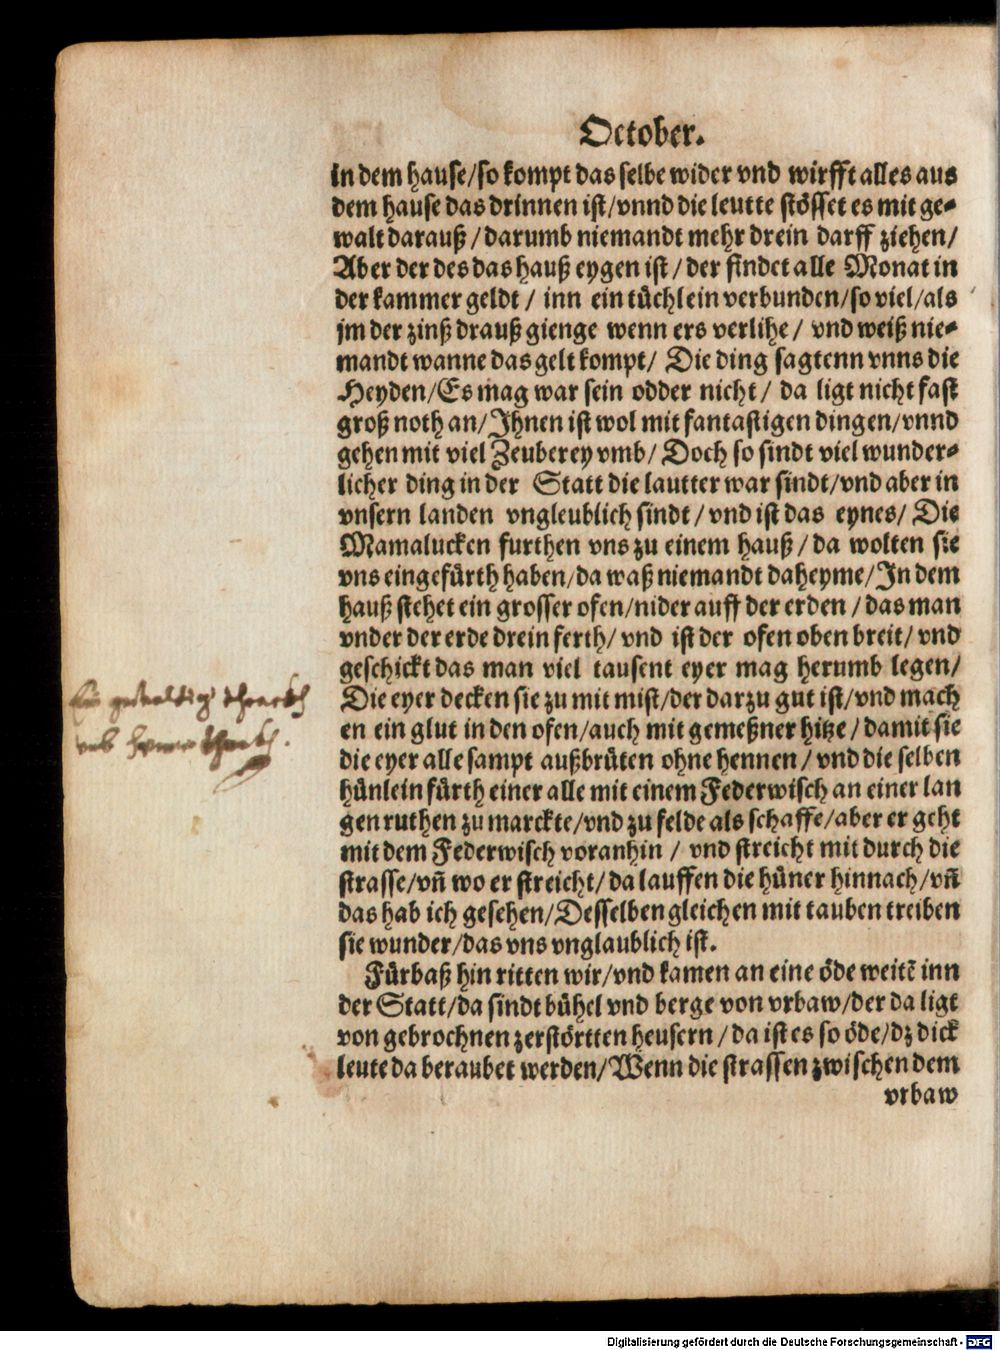 October.
in dem hause/so kompt das selbe wider vnd wirfft alles aus
dem hause das drinnen ist/vnnd die leutte stösset es mit ge-
walt darauß/darumb niemandt mehr drein darff ziehen/
Aber der des das hauß eygen ist/der findet alle Monat in
der kammer geldt/ inn ein tüchlein verbunden/so viel/als
jm der zinß drauß gienge wenn ers verlihe/ vnd weiß nie-
mandt wanne das gelt kompt/ Die ding sagtenn vnns die
Heyden/Es mag war sein odder nicht/ da ligt nicht fast
groß noth an/Ihnen ist wol mit fantastigen dingen/vnnd
gehen mit viel Zeuberey vmb/ Doch so sindt viel wunder-
licher ding in der Statt die lautter war sindt/vnd aber in
vnsern landen vngleublich sindt/vnd ist das eynes/ Die
Mamalucken furthen vns zu einem hauß/da wolten sie
vns eingefürth haben/da waß niemandt daheyme/In dem
hauß stehet ein grosser ofen/nider auff der erden/das man
vnder der erde drein ferth/vnd ist der ofen oben breit/vnd
geschickt das man viel tausent eyer mag herumb legen/
Die eyer decken sie zu mit mist/der darzu gut ist/vnd mach
en ein glut in den ofen/auch mit gemeßner hitze/damit sie
die eyer alle sampt außbrüten ohne hennen/vnd die selben
hünlein fürth einer alle mit einem Federwisch an einer lan
gen ruthen zu marckte/vnd zu felde als schaffe/aber er geht
mit dem Federwisch voranhin/ vnd streicht mit durch die
strasse/vñ wo er streicht/da lauffen die hüner hinnach/vñ
das hab ich gesehen/Desselben gleichen mit tauben treiben
sie wunder/das vns vnglaublich ist.
Fürbaß hin ritten wir/vnd kamen an eine öde weitē inn
der Statt/da sindt bühel vnd berge von vrbaw/der da ligt
von gebrochnen zerstörtten heusern/da ist es so öde/dz dick
leute da beraubet werden/Wenn die strassen zwischen dem
vrbaw
Ein
Digitalisierung gefördert durch die Deutsche Forschungsgemeinschaft - DFG